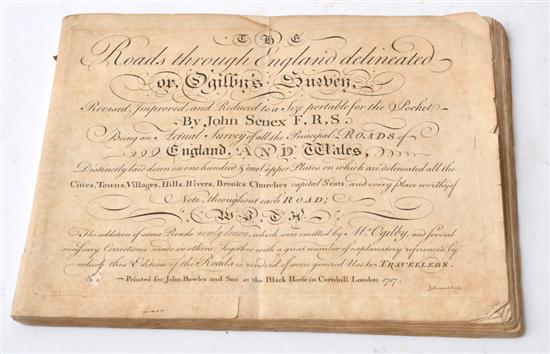 THE
Roads through England delineated
or, Ogilby's Survey,
Revised, Improved, and Reduced to a Size portable for the Pocket
By John Senex F.R.S.
Being an Actual Survey of all the Principal ROADS of
England, AND Wales,
Distinctly laid down on one hundred & one Copper Plates on which are delineated all the
Cities, Towns, Villages, Hills, Rivers, Brooks Churches capital Seats and every place worthy of
Note, throughout each ROAD;
WITH
The addition of some Roads newly drawn, which were omitted by Mr. Ogilby, and several
necessary Corrections made in others Together with a great number of explanatory references, by
which this Edition of the Roads is render'd of more general Use to TRAVELLERS.
Printed for John Bowles and Son at the Black Horse in Cornhill London 1757.